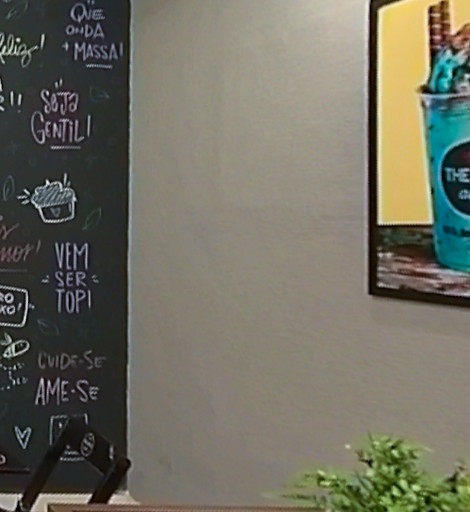 QUE
ONDA
+ MASSA!
feliz!
!!
SEJA
GENTIL!
VEM
SER
TOP!
CUIDE-SE
AME-SE
THE